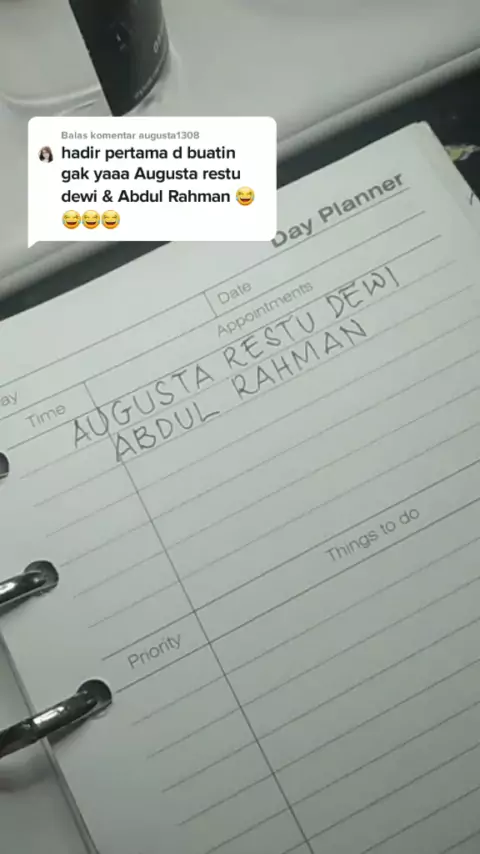 Balas komentar augusta1308
hadir pertama d buatin
gak yaaa Augusta restu
dewi & Abdul Rahman 😂
😂😂😂
Day Planner
Date
Appointments
ay
Time
AUGUSTA RESTU DEWI
ABDUL RAHMAN
Things to do
Priority